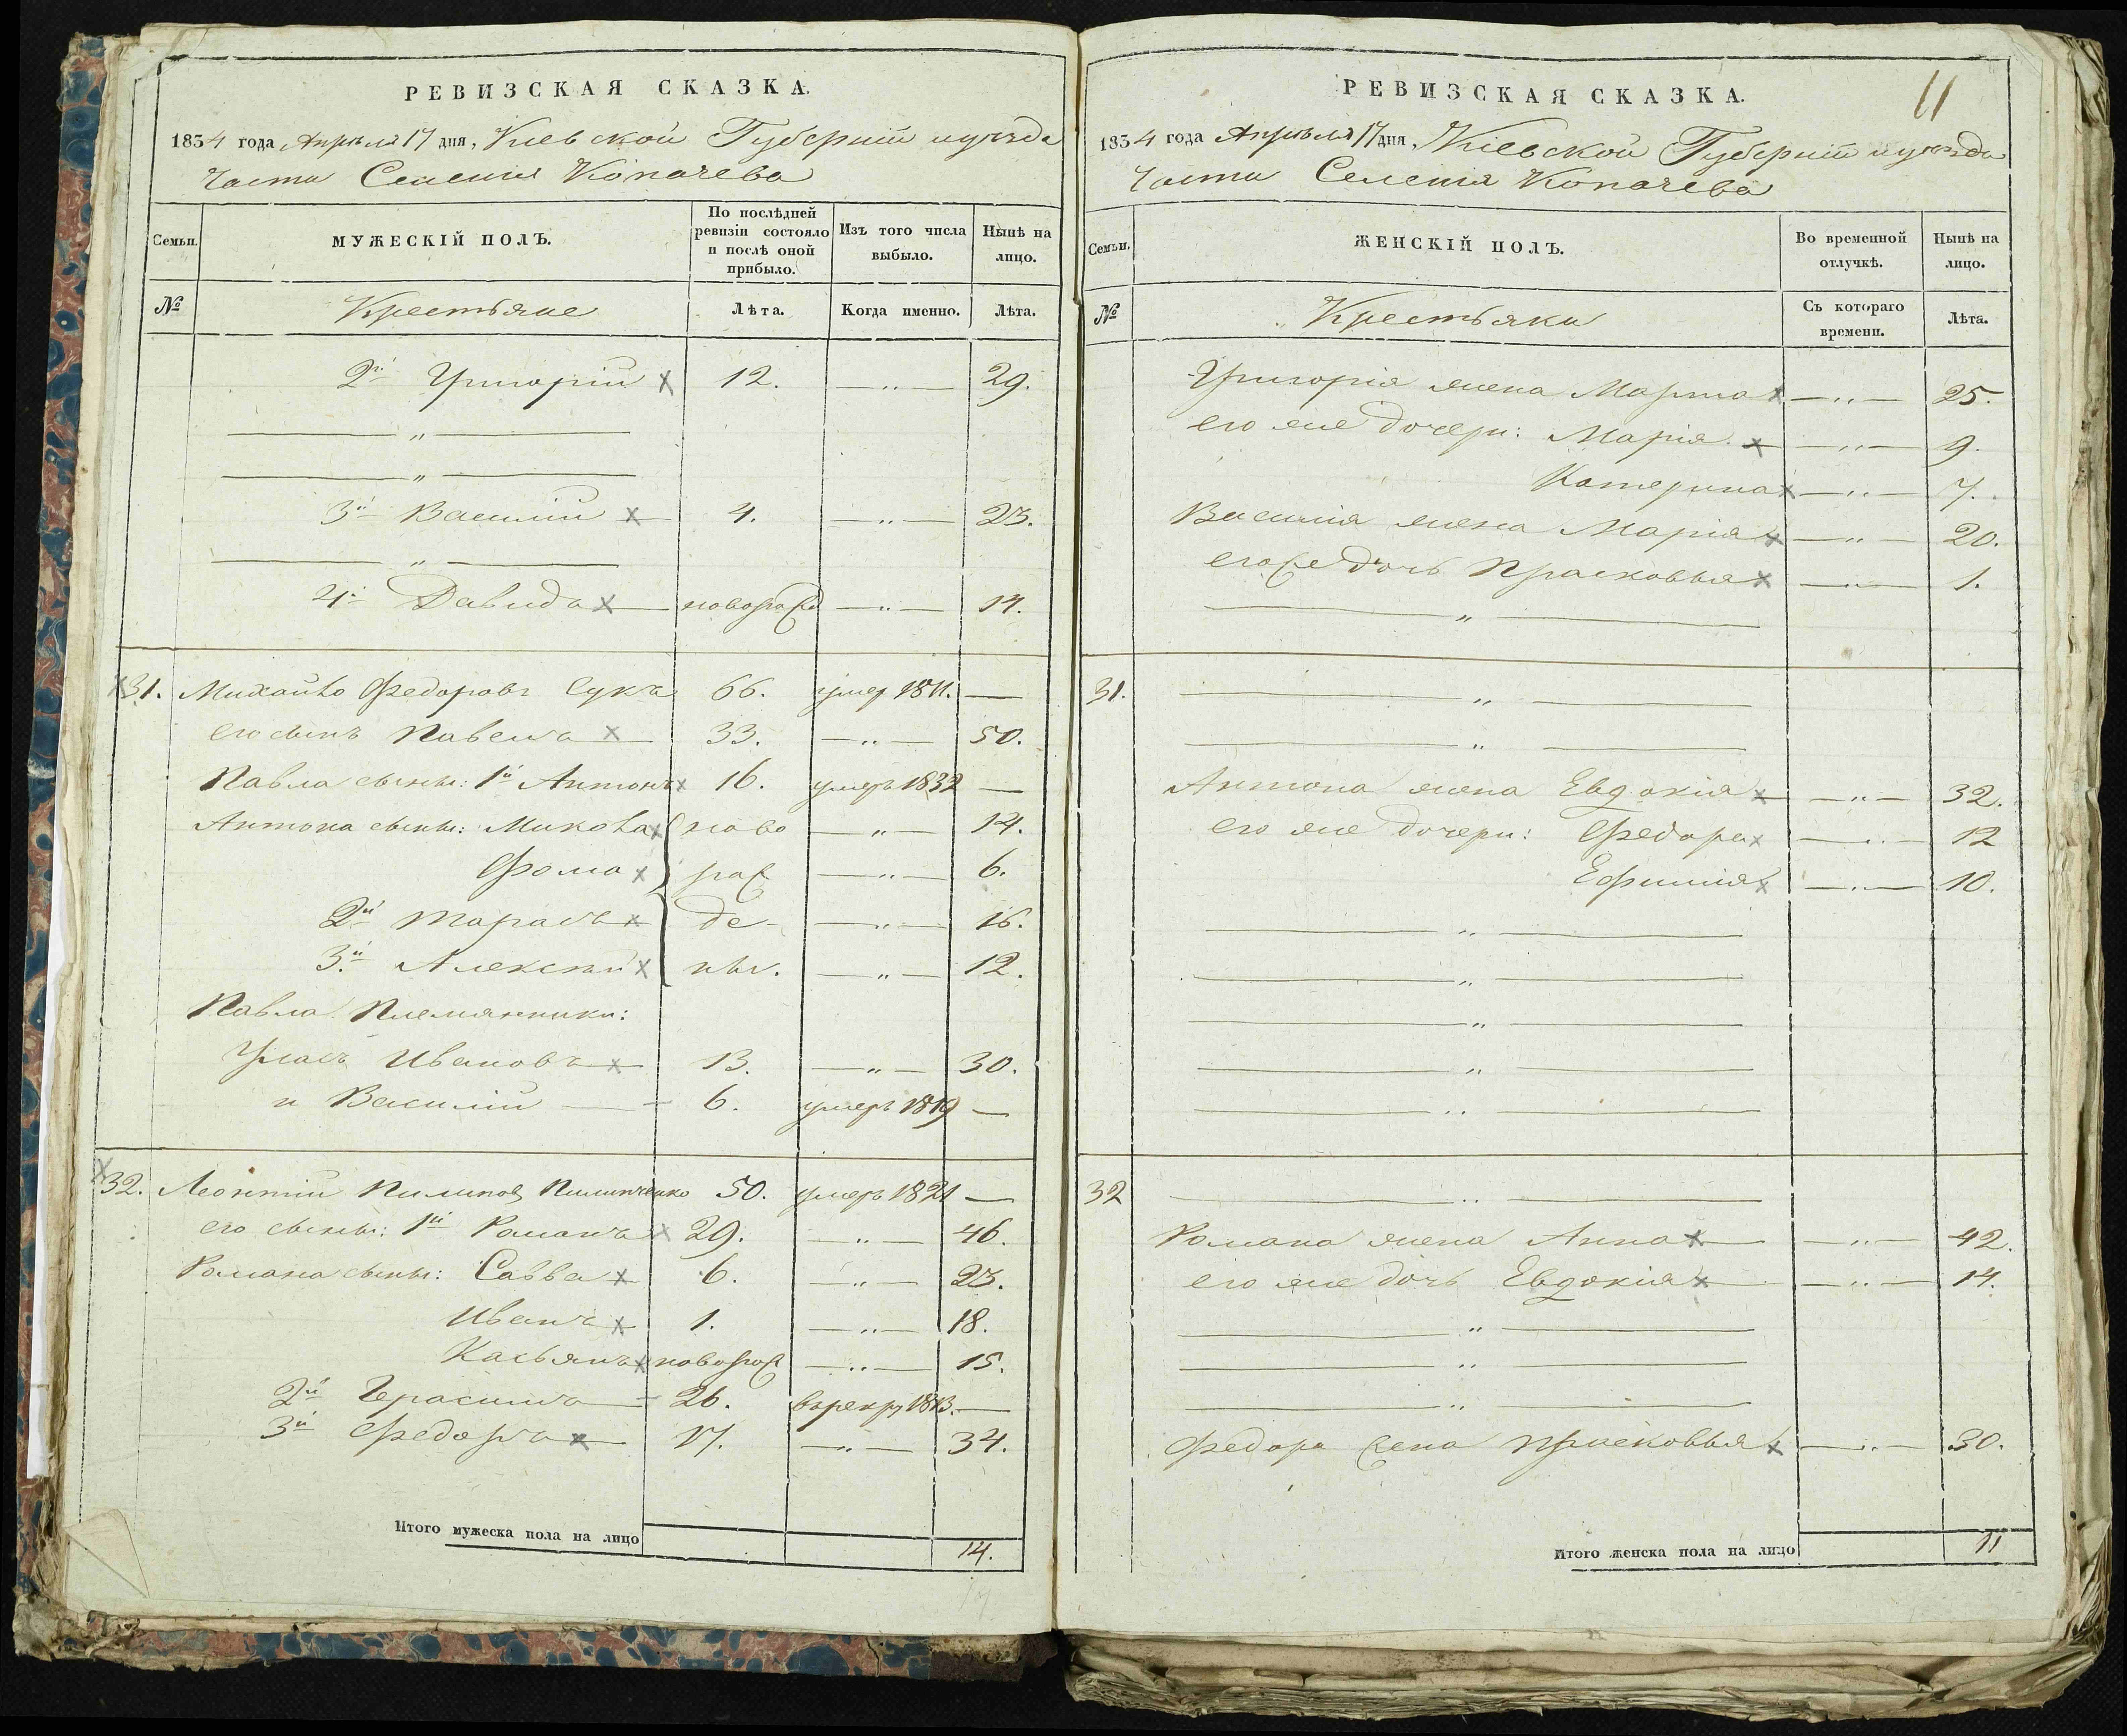 РЕВИЗСКАЯ СКАЗКА.
1834 года Апрѣля 17 дня, Киевской Губернии и уѣзда
части Селения Копачева
Семьи.
МУЖЕСКІЙ ПОЛЪ.
По послѣдней ревизіи состояло и послѣ оной прибыло.
Изъ того числа выбыло.
Нынѣ на лицо.
№
Крестьяне
Лѣта.
Когда именно.
Лѣта.
2й Григорій 12. —„— 29.
— „ —
— „ —
3й Василій 4. —„— 23.
— „ —
4й Давидъ новорож —„— 14.
31. Михайло Федоровъ Сукъ 66. умер 1811. —
его сынъ Павелъ 33. —„— 50.
Павла сыны: 1й Антонъ 16. умеръ 1832 —
Антона сыны: Микола ново —„— 14.
Фома рож —„— 6.
2й Тарасъ де- —„— 16.
3й Алексѣй ны. —„— 12.
Павла Племянники:
Уласъ Ивановъ 13. —„— 30.
и Василій — 6. умеръ 1819 —
32. Леонтій Пилипов Пилипченко 50. умеръ 1821 —
его сыны: 1й Романъ 29. —„— 46.
Романа сыны: Савва 6. —„— 23.
Иванъ 1. —„— 18.
Касьянъ новорож —„— 15.
2й Герасимъ 26. въ рекру 1813. —
3й Федоръ 17. —„— 34.
Итого мужеска пола на лицо
14.
17
11
РЕВИЗСКАЯ СКАЗКА.
1834 года Апрѣля 17 дня, Кіевской Губернии и уѣзда
части Селения Копачева
Семьи.
ЖЕНСКІЙ ПОЛЪ.
Во временной отлучкѣ.
Нынѣ на лицо.
№
Крестьянки
Съ котораго времени.
Лѣта.
Григорія жена Марта —„— 25.
его же дочери: Марія —„— 9.
Катерина —„— 7.
Василія жена Марія —„— 20.
его же дочь Прасковья —„— 1.
— „ —
31. — „ —
— „ —
Антона жена Евдокия —„— 32.
его же дочери: Федора —„— 12
Ефимия —„— 10.
— „ —
— „ —
— „ —
— „ —
— „ —
32 — „ —
Романа жена Анна —„— 42.
его же дочь Евдокия —„— 14.
— „ —
— „ —
— „ —
Федора жена Прасковья —„— 30.
Итого женска пола на лицо
11